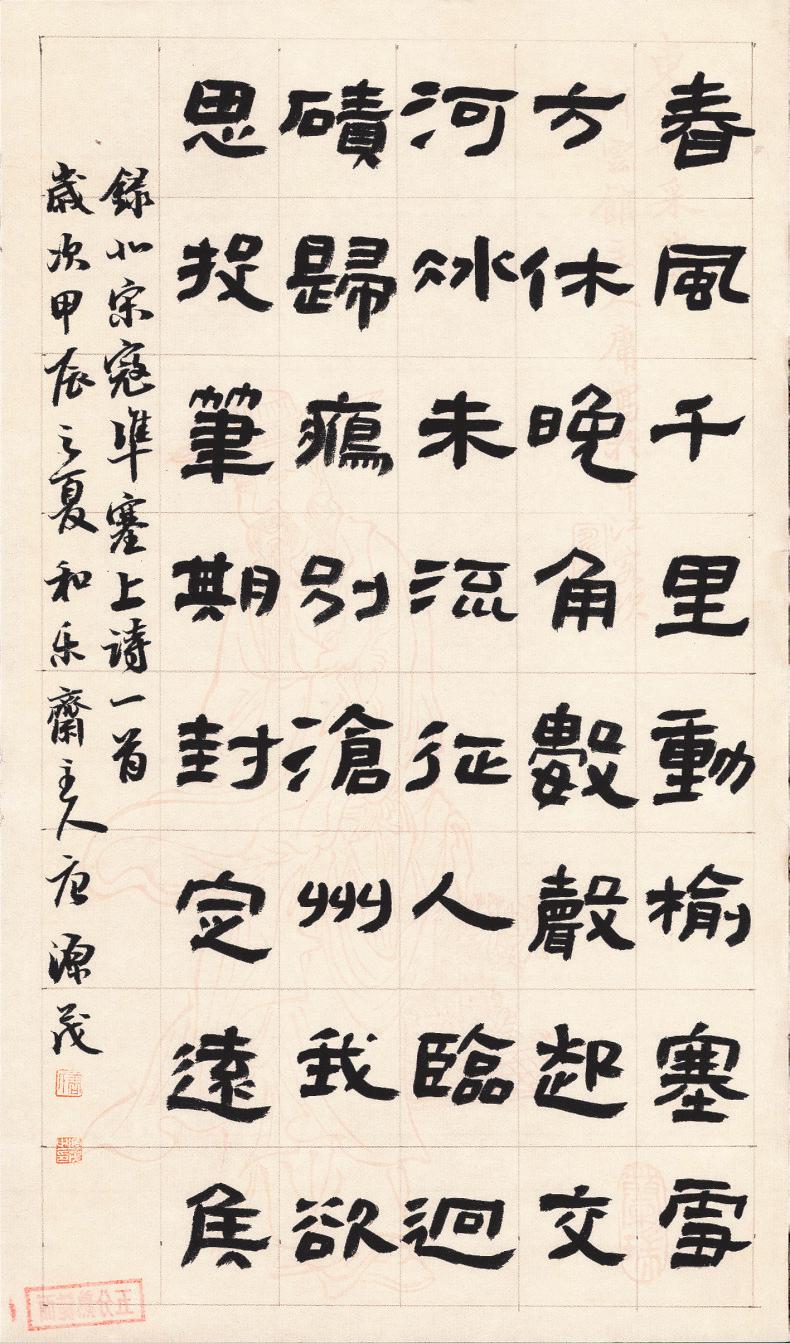 春風千里動榆塞雪
方休晚角數聲起交
河冰未流征人臨迥
磧歸鴈別滄州我欲
思投筆期封定遠矦
錄北宋寇準塞上诗一首
歲次甲辰之夏和乐齋主人唐源茂